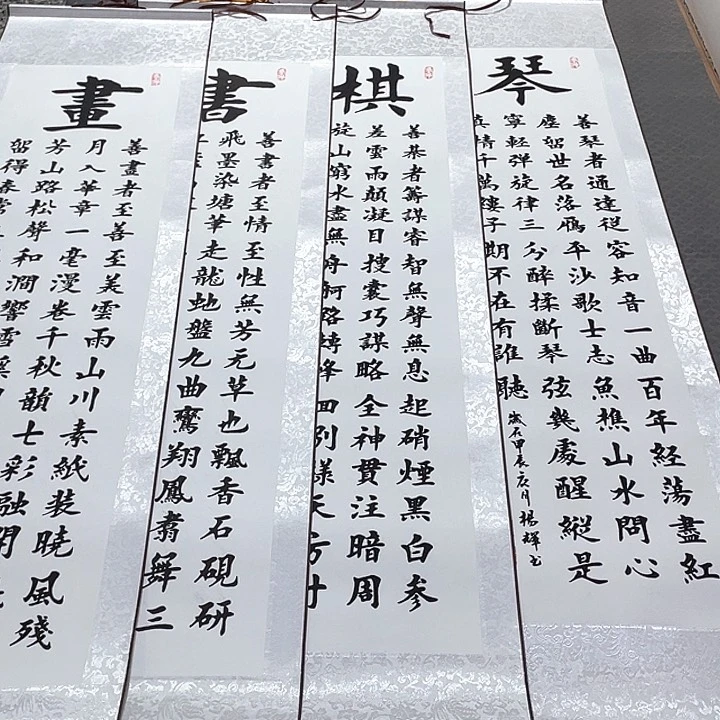 琴
善琴者通達從容知音一曲百年経蕩盡紅
塵留世名落雁平沙歌士志魚樵山水問心
寧輕弹旋律三分醉揉斷琴弦幾處醒縱是
真情千萬縷子期不在有誰聽
歲在甲辰庚月楊輝书
棋
善棊者籌謀睿智無聲無息起硝煙黑白参
差雲雨顛凝目搜囊巧謀略全神貫注暗周
旋山窮水盡無舟舸路轉峰回別樣天方寸
書
善書者至情至性無芳元草也飄香石硯研
飛墨染塘筆走龍虵盤九曲鸞翔鳳翥舞三
畫
善畫者至善至美雲雨山川素紙装曉風殘
月入華章一毫漫卷千秋韻七彩融
芳山路松聲和澗響雪溪
留得春常